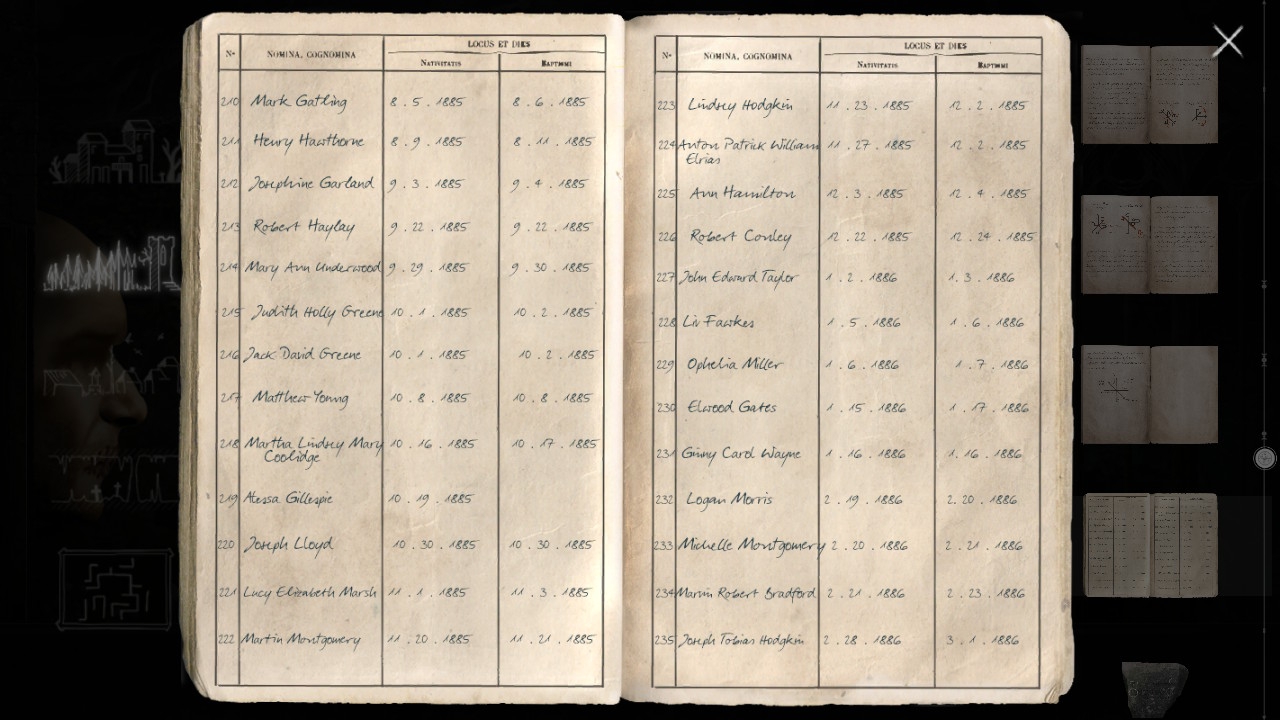 LOCUS ET DIES
Nº NOMINA, COGNOMINA NATIVITATIS BAPTISMI
210 Mark Gatling 8 . 5 . 1885 8 . 6 . 1885
211 Henry Hawthorne 8 . 9 . 1885 8 . 11 . 1885
212 Josephine Garland 9 . 3 . 1885 9 . 4 . 1885
213 Robert Haylay 9 . 22 . 1885 9 . 22 . 1885
214 Mary Ann Underwood 9 . 29 . 1885 9 . 30 . 1885
215 Judith Holly Greene 10 . 1 . 1885 10 . 2 . 1885
216 Jack David Greene 10 . 1 . 1885 10 . 2 . 1885
217 Matthew Young 10 . 8 . 1885 10 . 8 . 1885
218 Martha Lindsey Mary 10 . 16 . 1885 10 . 17 . 1885
Coolidge
219 Alessa Gillespie 10 . 19 . 1885
220 Joseph Lloyd 10 . 30 . 1885 10 . 30 . 1885
221 Lucy Elizabeth Marsh 11 . 1 . 1885 11 . 3 . 1885
222 Martin Montgomery 11 . 20 . 1885 11 . 21 . 1885
LOCUS ET DIES
Nº NOMINA, COGNOMINA NATIVITATIS BAPTISMI
223 Lindsey Hodgkin 11 . 23 . 1885 12 . 2 . 1885
224 Anton Patrick William 11 . 27 . 1885 12 . 2 . 1885
Elrias
225 Ann Hamilton 12 . 3 . 1885 12 . 4 . 1885
226 Robert Conley 12 . 22 . 1885 12 . 24 . 1885
227 John Edward Taylor 1 . 2 . 1886 1 . 3 . 1886
228 Liv Fawkes 1 . 5 . 1886 1 . 6 . 1886
229 Ophelia Miller 1 . 6 . 1886 1 . 7 . 1886
230 Elwood Gates 1 . 15 . 1886 1 . 17 . 1886
231 Ginny Carol Wayne 1 . 16 . 1886 1 . 16 . 1886
232 Logan Morris 2 . 19 . 1886 2 . 20 . 1886
233 Michelle Montgomery 2 . 20 . 1886 2 . 21 . 1886
234 Robert Bradford 2 . 21 . 1886 2 . 23 . 1886
235 Joseph Tobias Hodgkin 2 . 28 . 1886 3 . 1 . 1886